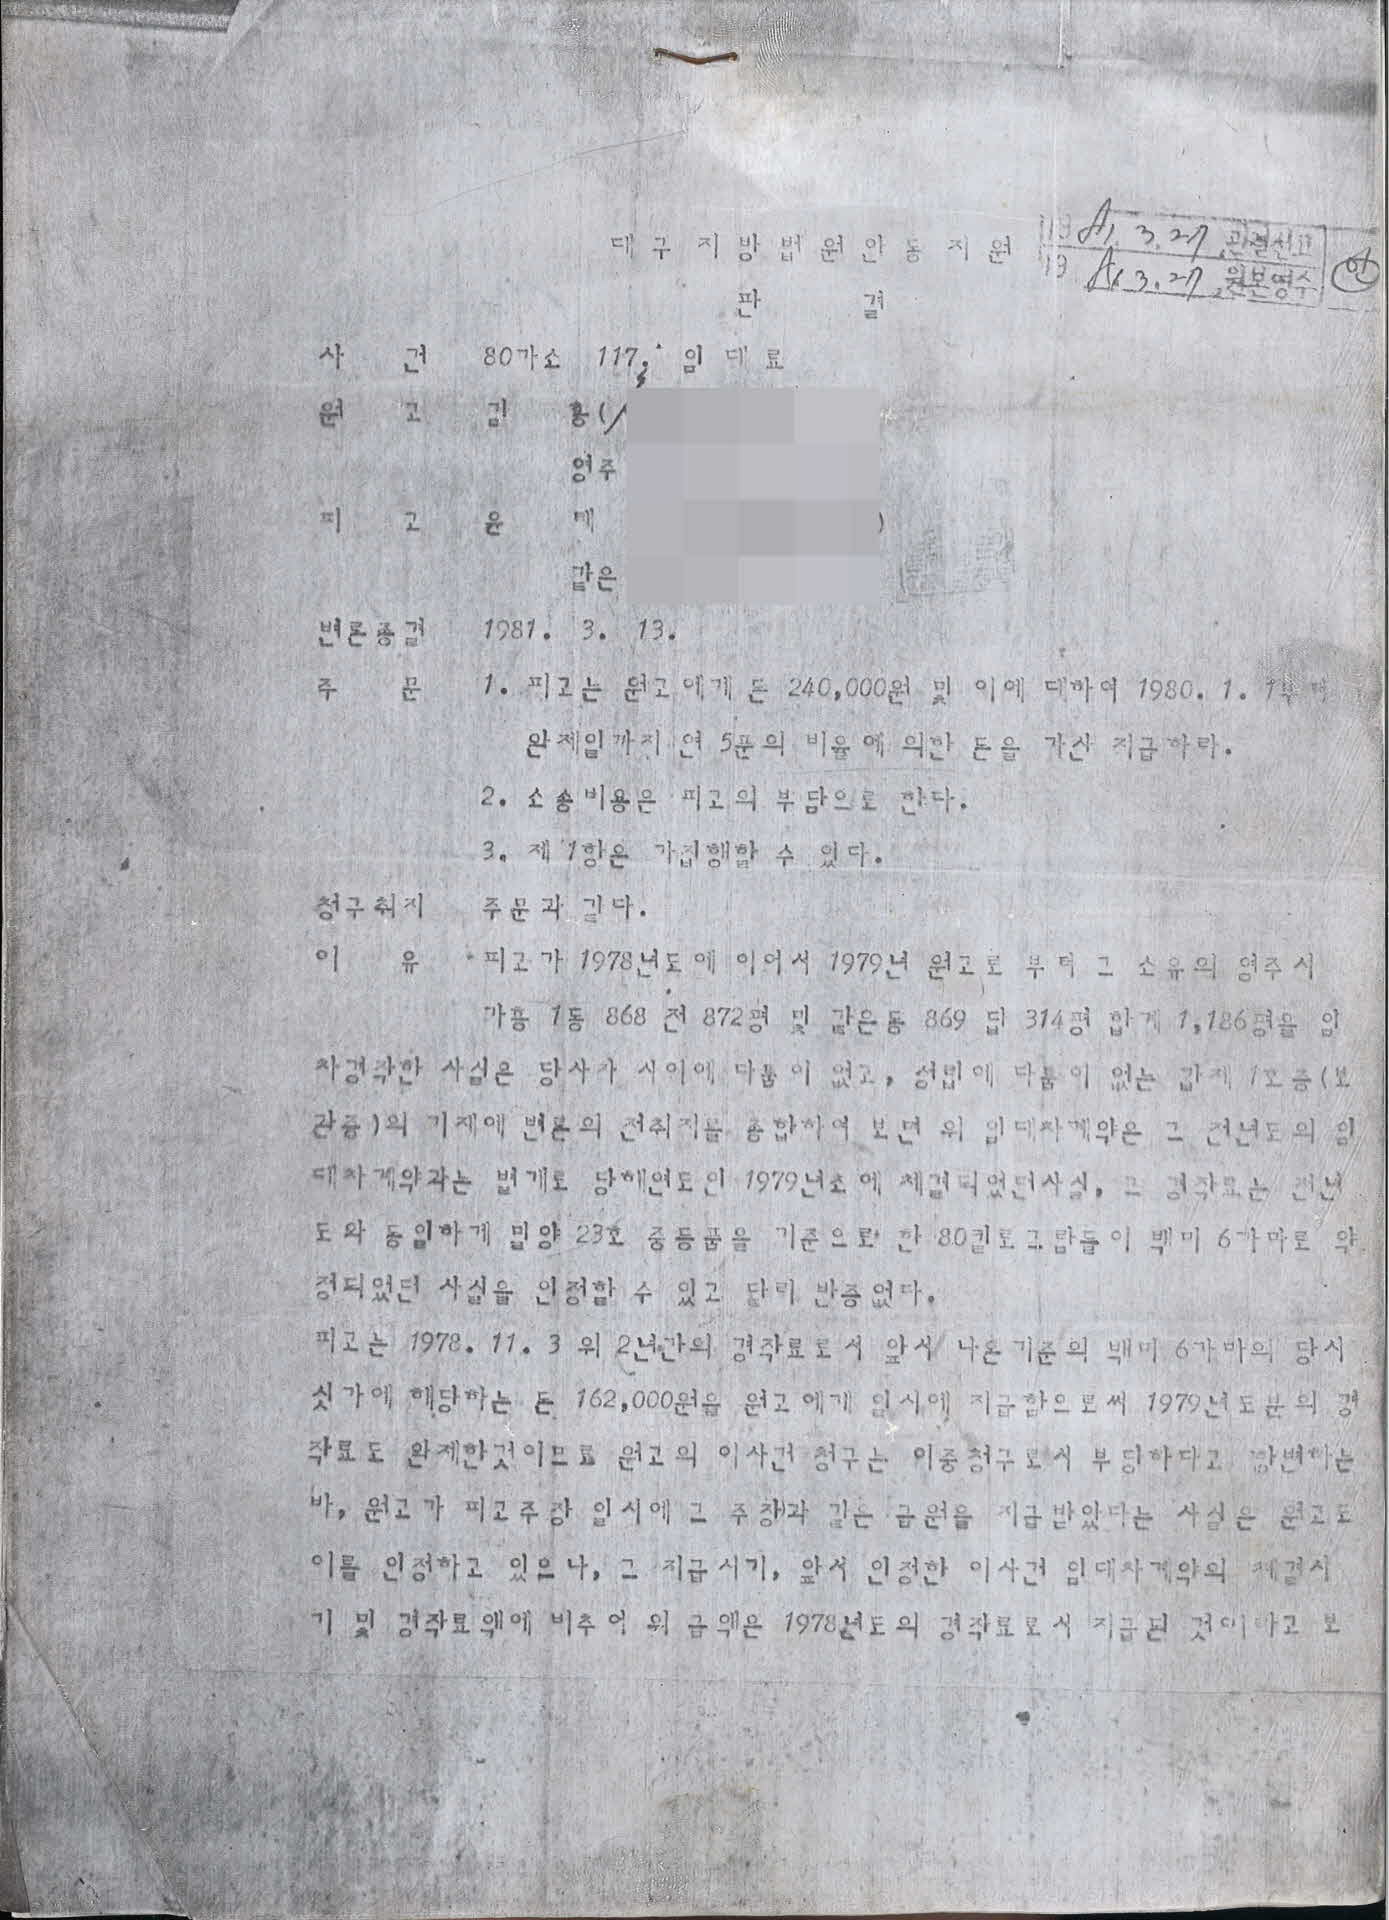 대구지방법원안동지원
19 81. 3. 27. 판결선고
19 81. 3. 27. 원본영수
판 결
사 건 80가소 117, 임대료
원 고 김 홍(
영주
피 고 윤 태 )
같은
변론종결 1981. 3. 13.
주 문 1. 피고는 원고에게 돈 240,000원 및 이에 대하여 1980. 1. 1부터
완제일까지 연 5푼의 비율에 의한 돈을 가산 지급하라.
2. 소송비용은 피고의 부담으로 한다.
3. 제 1항은 가집행할 수 있다.
청구취지 주문과 같다.
이 유 피고가 1978년도에 이어서 1979년 원고로 부터 그 소유의 영주시
가흥 1동 868 전 872평 및 같은동 869 답 314평 합계 1,186평을 임
차경작한 사실은 당사자 사이에 다툼이 없고, 성립에 다툼이 없는 갑제 1호증(보
관증)의 기재에 변론의 전취지를 종합하여 보면 위 임대차계약은 그 전년도의 임
대차계약과는 별개로 당해연도인 1979년초에 체결되었던사실, 그 경작료는 전년
도와 동일하게 밀양 23호 중등품을 기준으로 한 80킬로그람들이 백미 6가마로 약
정되었던 사실을 인정할 수 있고 달리 반증없다.
피고는 1978. 11. 3 위 2년간의 경작료로서 앞서 나온기준의 백미 6가마의 당시
싯가에 해당하는 돈 162,000원을 원고에게 일시에 지급함으로써 1979년도분의 경
작료도 완제한것이므로 원고의 이사건 청구는 이중청구로서 부당하다고 항변하는
바, 원고가 피고주장 일시에 그 주장과 같은 금원을 지급받았다는 사실은 원고도
이를 인정하고 있으나, 그 지급시기, 앞서 인정한 이사건 임대차계약의 체결시
기 및 경작료액에 비추어 위 금액은 1978년도의 경작료로서 지급된 것이라고 보